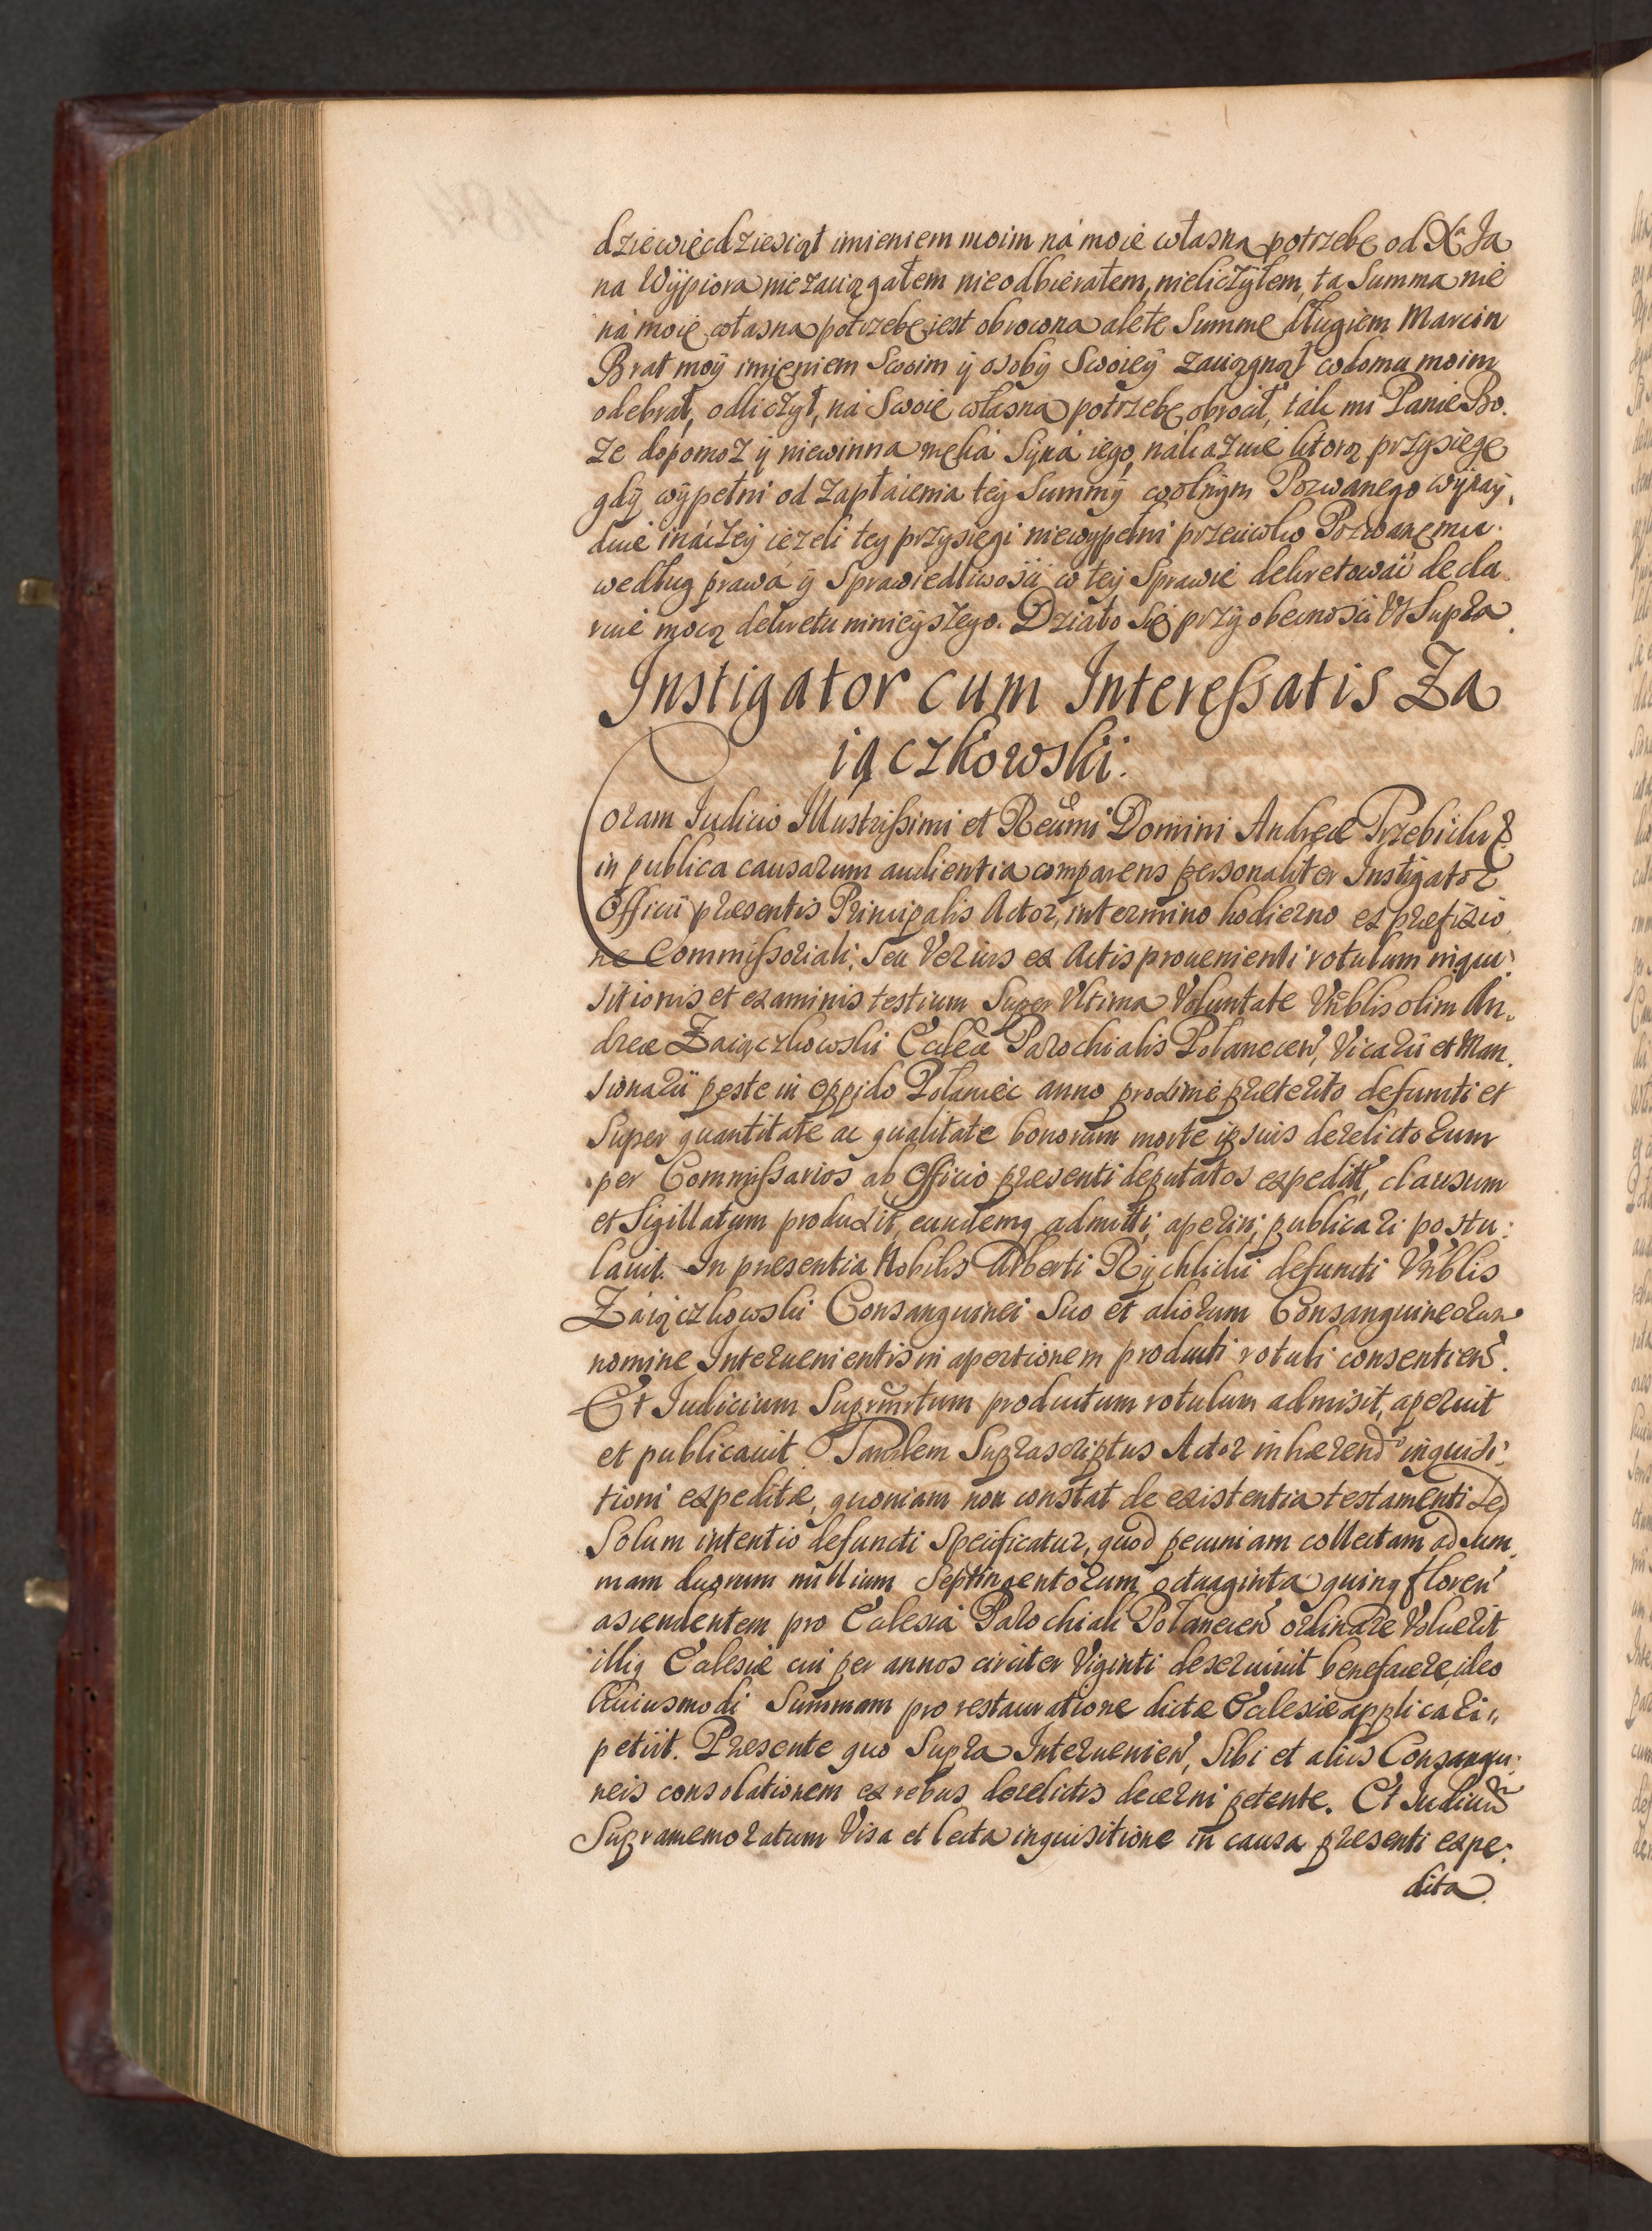 dziewięcdziesiąt imieniem moim ná moię własną potrzebę od Xa Ja
na Wÿpiora nie zaciągałem nie odbierałem, nie liczÿłem, ta Summa nie
ná moię własną potrzebę iest obrocona ale tę Summę długiem Marcin
Brat moÿ imięniem Swoim ÿ osobÿ Swoieÿ zaciągnął w domu moim
odebrał, odliczÿł, ná Swoię własną potrzebę obrocił, ták mi Panie Bo.
ze dopomoz ÿ niewinna męká Sÿná iego, nákazuie ktorą przysięgę
gdÿ wÿpełni od zapłácenia teÿ Summÿ wolnÿm Pozwanego wÿnay,
duie ináczeÿ iezeli tey przysięgi niewypełni przeciwko Pozwanemu
według prawá ÿ Sprawiedliwości w teÿ Sprawie dekretowáć decla
ruie mocą dekretu ninieÿszego. Działo Się przÿ obecności Vt Supra.
Instigator cum Interessatis Za
iączkowski.
Coram Iudicio Illustrissimi et Reumi Domini Andreæ Przebickię
in publica causarum audientia comparens personaliter Instigator
Officii præsentis Principalis Actor, in termino hodierno ex præfixio
ne Commissoriali, Seu Verius ex Actis proueniente rotulum inqui:
sitionis et examinis testium Super Vltima Voluntate Vnblis olim An,
dreæ Zaiączkowski Eccleã Parochialis Połanecen, Vicarii et Man,
sionarii peste in oppido Połaniec anno proxime præterito defuncti et
Super quantitate ac qualitate bonorum morte ipsius derelictorum
per Commissarios ab Officio præsenti deputatos expeditt, clausum
et Sigillatum produxit, eundemq admitti, aperiri, publicari postu:
lauit. In præsentia Nobilis Alberti Rÿchlicki defuncti Vnblis
Záiączkowski Consanguinei Suo et aliorum Consanguineorum
nomine Interuenientis in apertionem producti rotuli consentien.
Et Iudicium Suprarurtum productum rotulum admisit, aperuit
et publicauit. Tandem Suprascriptus Actor inhærend inquisi:
tioni expeditæ, quoniam non constat de existentia testamenti sed
Solum intentio defuncti Specificatur, quod pecuniam collectam ad Sum,
mam duorum millium Septingentorum octuaginta quinq floren
ascendentem pro Ecclesia Parochiali Połanecen ordinare Voluerit
illiq Ecclesiæ cui per annos circiter Viginti deseruiuit benefacere, ideo
huiusmodi Summam pro restauratione dictæ Ecclesiæ applicari,,
petiit. Præsente quo Supra Interuenien, Sibi et aliis Consangui:
neis consolationem ex rebus derelictis decerni petente. Et Iudiciũ
Supramemoratum Visa et lecta inquisitione in causa præsenti expe:
dita.